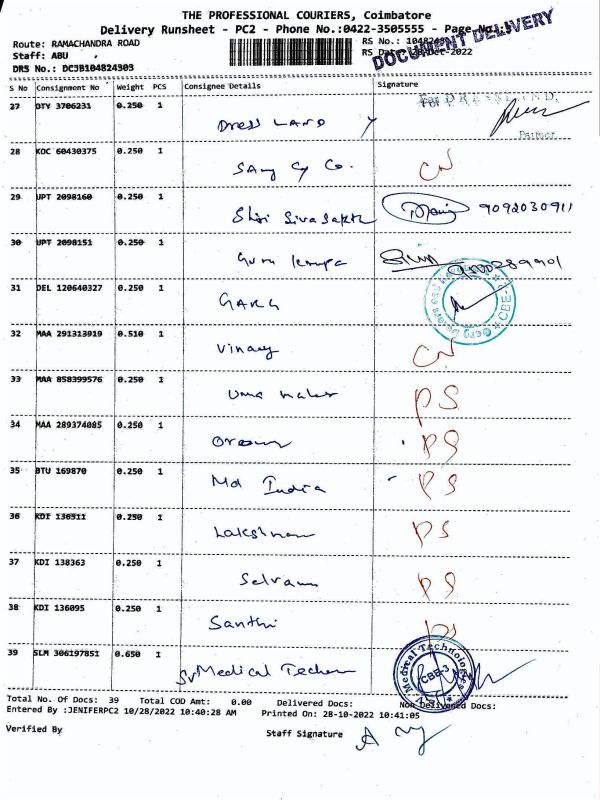 THE PROFESSIONAL COURIERS, Coimbatore
Delivery Runsheet - PC2 - Phone No.:0422-3505555 - Page No.:
Route: RAMACHANDRA ROAD
RS No.:
Staff: ABU
RS Date: 28-Oct-2022
DOCUMENT DELIVERY
DRS No.: DCJB104824303
S No Consignment No Weight PCS Consignee Details Signature
27 DTY 3706231 0.250 1 Dress LAND For DRESSLAND,
Partner
28 KOC 60430375 0.250 1 SAny Cy Co. CN
29 UPT 2098160 0.250 1 Shri Siva Sakthi 9092030911
30 UPT 2098151 0.250 1 Guru
31 DEL 120640327 0.250 1 GARG CBE-2
32 MAA 291313919 0.510 1 Vinay CN
33 MAA 858399576 0.250 1 Uma PS
34 MAA 289374085 0.250 1 PS
35 BTU 169870 0.250 1 Md India PS
36 KDI 136511 0.250 1 Lakshman PS
37 KDI 138363 0.250 1 Selvam PS
38 KDI 136095 0.250 1 Santhi PS
39 SLM 306197851 0.650 1 SV Medical Techno Medical Technologies CBE-3
Total No. Of Docs: 39 Total COD Amt: 0.00 Delivered Docs: Non Delivered Docs:
Entered By :JENIFERPC2 10/28/2022 10:40:28 AM Printed On: 28-10-2022 10:41:05
Verified By Staff Signature